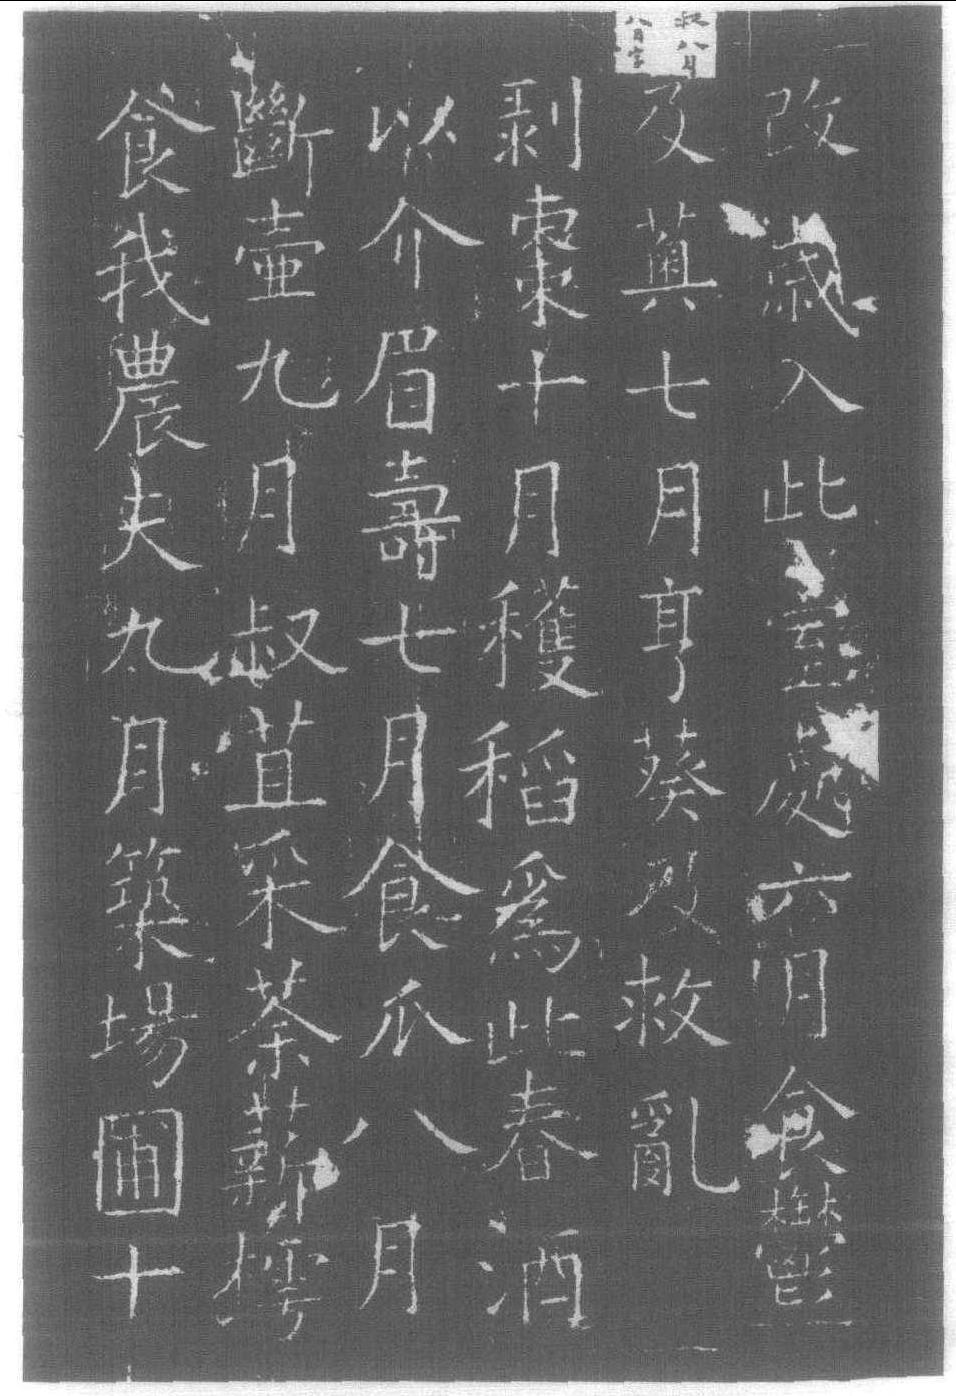 改歲入此室處六月食鬱
及薁七月亨葵及救亂
剥棗十月穫稻爲此春酒
以介眉壽七月食瓜八月
斷壺九月叔苴采荼薪樗
食我農夫九月築場圃十